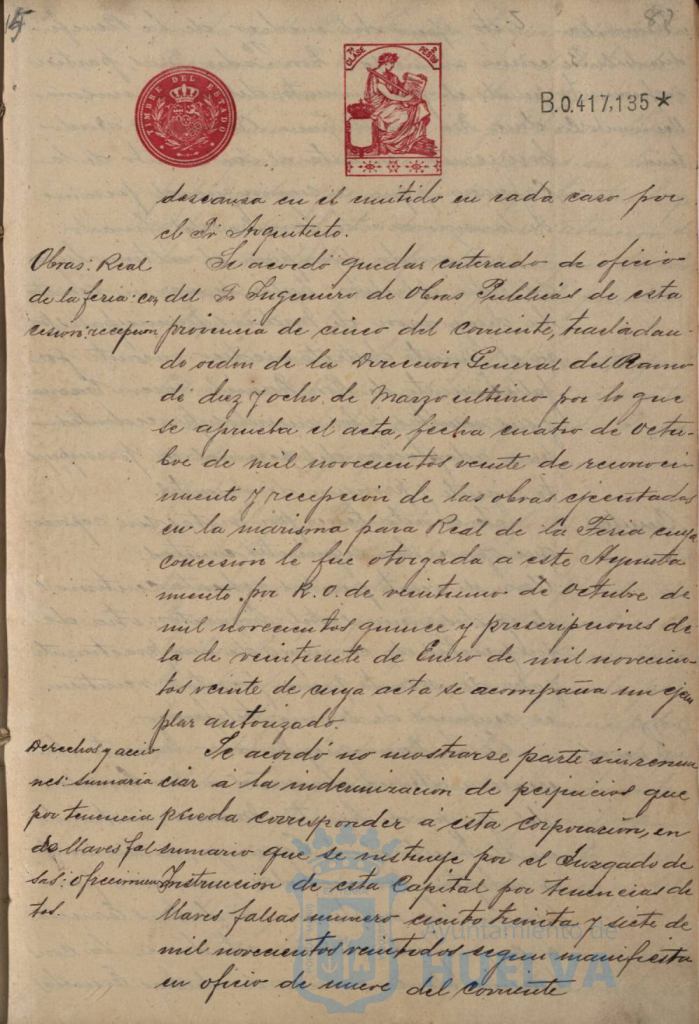 15
87
TIMBRE DEL ESTADO
7ª CLASE
8ª PESETAS
B.0.417,135*
descansa en el emitido en cada caso por
el Sr Arquitecto.
Obras: Real
de la feria: con
cesión: recepción
Se acordó quedar enterado de oficio
del Sr Ingeniero de Obras Publicas de esta
provincia de cinco del corriente, trasladan-
do orden de la Dirección General del Ramo
de diez y ocho de Marzo ultimo por lo que
se aprueba el acta, fecha cuatro de Octu-
bre de mil novecientos veinte de reconoci-
miento y recepción de las obras ejecutadas
en la marisma para Real de la Feria cuya
concesion le fue otorgada a este Ayunta
miento por R. O. de veintiuno de Octubre de
mil novecientos quince y prescripciones de
la de veintisiete de Enero de mil novecien-
tos veinte de cuya acta se acompaña un ejem
plar autorizado.
Derechos y accio
nes: sumario
por tenencia
de llaves fal
sas: ofrecimien
tos.
Se acordó no mostrarse parte sin renun
ciar á la indemnización de perjuicios que
pueda corresponder á esta corporación, en
sumario que se instruye por el Juzgado de
Instrucción de esta Capital por tenencias de
llaves falsas numero ciento treinta y siete de
mil novecientos veintidos segun manifiesta
en oficio de nueve del corriente
Ayuntamiento de
HUELVA